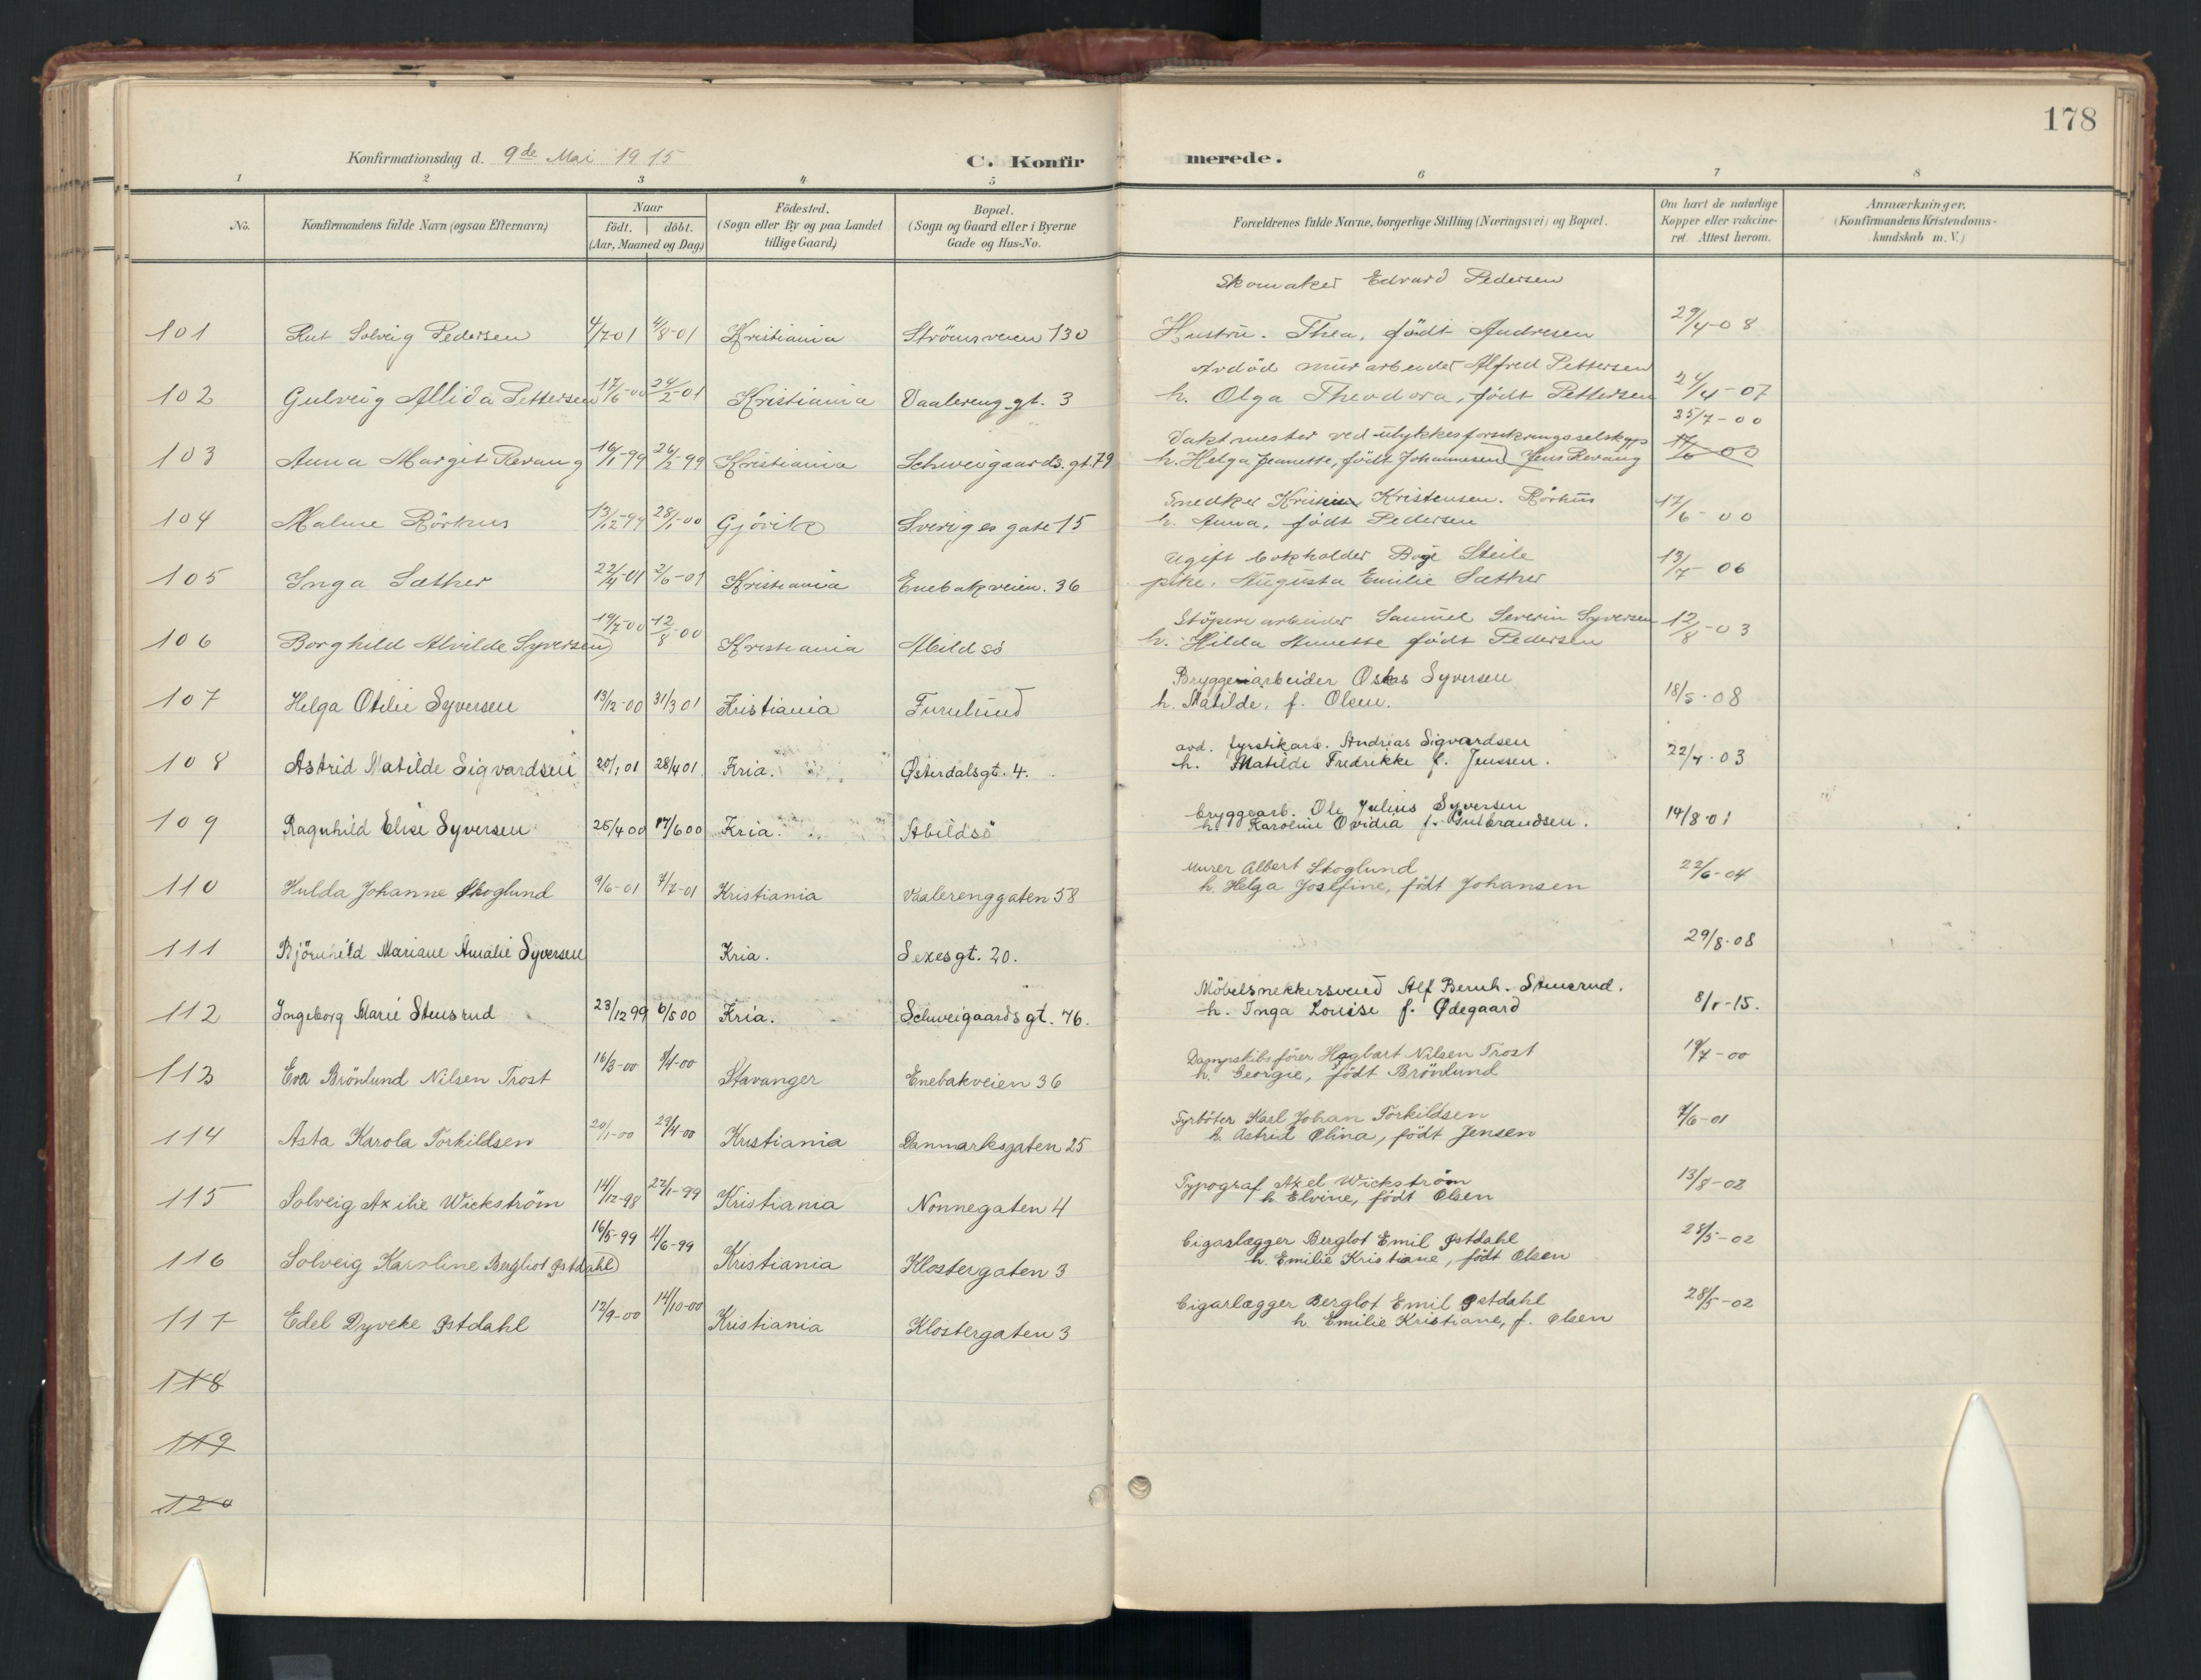 178
Konfirmationsdag d. 9de Mai 1915
C. Konfirmerede.
1 2 3 4 5 6 7 8
No. Konfirmandens fulde Navn (ogsaa Efternavn) Naar födt. döbt. (Aar, Maaned og Dag) Födested. (Sogn eller By og paa Landet tillige Gaard) Bopæl. (Sogn og Gaard eller i Byerne Gade og Hus-No. Forældrenes fulde Navne, borgerlige Stilling (Næringsvei) og Bopæl. Om havt de naturlige Kopper eller vakcineret. Attest herom. Anmærkninger. (Konfirmandens Kristendomskundskab m. V.)
Skomaker Edvard Pedersen
101 Rut Solveig Pedersen 4/7 01 4/8-01 Kristiania Strömsveien 130 Hustru. Thea, födt Andresen 29/4-08
Avdöd murarbeider Alfred Pettersen
102 Gulveig Allida Pettersen 17/6-00 24/2-01 Kristiania Vaalereng gt. 3 h. Olga Theodora, födt Pettersen 24/4-07
Vaktmester ved ulykkesforsikringsselskaps 25/7-00
103 Anna Margit Revang 16/1-99 26/2-99 Kristiania Schweigaards. gt. 79 h. Helga Jeanette, födt Johannesen Jens Revang 17/6 00
Snedker Kristian Kristensen. Rörhus
104 Malme Rörhus 13/12-99 28/1-00 Gjövik Sveriges gate 15 h. Anna, födt Pedersen 17/6-00
Ugift bokholder Steile
105 Inga Sæther 22/4-01 2/6-01 Kristiania Enebakveien. 36 pike, Augusta Emilie Sæther 13/7 06
Stöperiarbeider Samuel Severin Syversen
106 Borghild Alvilde Syversen 19/7-00 12/8-00 Kristiania Abildsö h. Hilda Annette födt Pedersen 12/8-03
Bryggeriarbeider Oskar Syversen
107 Helga Otilie Syversen 13/12-00 31/3 01 Kristiania Furulund h. Matilde, f. Olsen. 18/5-08
avd. fyrstikarb. Andreas Sigvardsen
108 Astrid Matilde Sigvardsen 20/1 01 28/4 01 Kria. Østerdalsgt. 4. h. Matilde Fredrikke f. Jenssen. 22/4-03
bryggearb. Ole Julius Syversen
109 Ragnhild Elise Syversen 25/4 00 17/6 00 Kria. Abildsö h. Karoline Ovidia f. Gulbrandsen. 14/8-01
Murer Albert Skoglund
110 Hulda Johanne Skoglund 9/6-01 7/7-01 Kristiania Vaalerenggaten 58 h. Helga Josefine, födt Johansen 22/6-04
111 Björnhild Mariane Amalie Syversen Kria. Sexesgt. 20. 29/8-08
Möbelsnekkersvend Alf Bernh. Stensrud.
112 Ingeborg Marie Stensrud 23/12 99 6/5 00 Kria. Schweigaards gt. 76. h. Inga Louise f. Ødegaard 8/5-15.
Dampskibsförer Hagbart Nilsen Trost
113 Eva Brönlund Nilsen Trost 16/3-00 Stavanger Enebakveien 36 h. Georgie, födt Brönlund 19/7-00
Fyrböter Karl Johan Torkildsen
114 Asta Karola Torkildsen 20/1-00 29/4-00 Kristiania Danmarksgaten 25 h. Astrid Olina, födt Jensen 7/6-01
Typograf Axel Wickström
115 Solveig Axilie Wickström 14/12-98 22/1-99 Kristiania Nonnegaten 4 h. Elvine, födt Olsen 13/8-02
Cigarlægger Berglot Emil Østdahl
116 Solveig Karoline Bergliot Østdahl 16/5-99 4/6-99 Kristiania Klostergaten 3 h. Emilie Kristiane, födt Olsen 28/5-02
Cigarlægger Berglot Emil Østdahl
117 Edel Dyveke Østdahl 12/9-00 14/10-00 Kristiania Klostergaten 3 h. Emilie Kristiane, f. Olsen 28/5-02
118
119
120